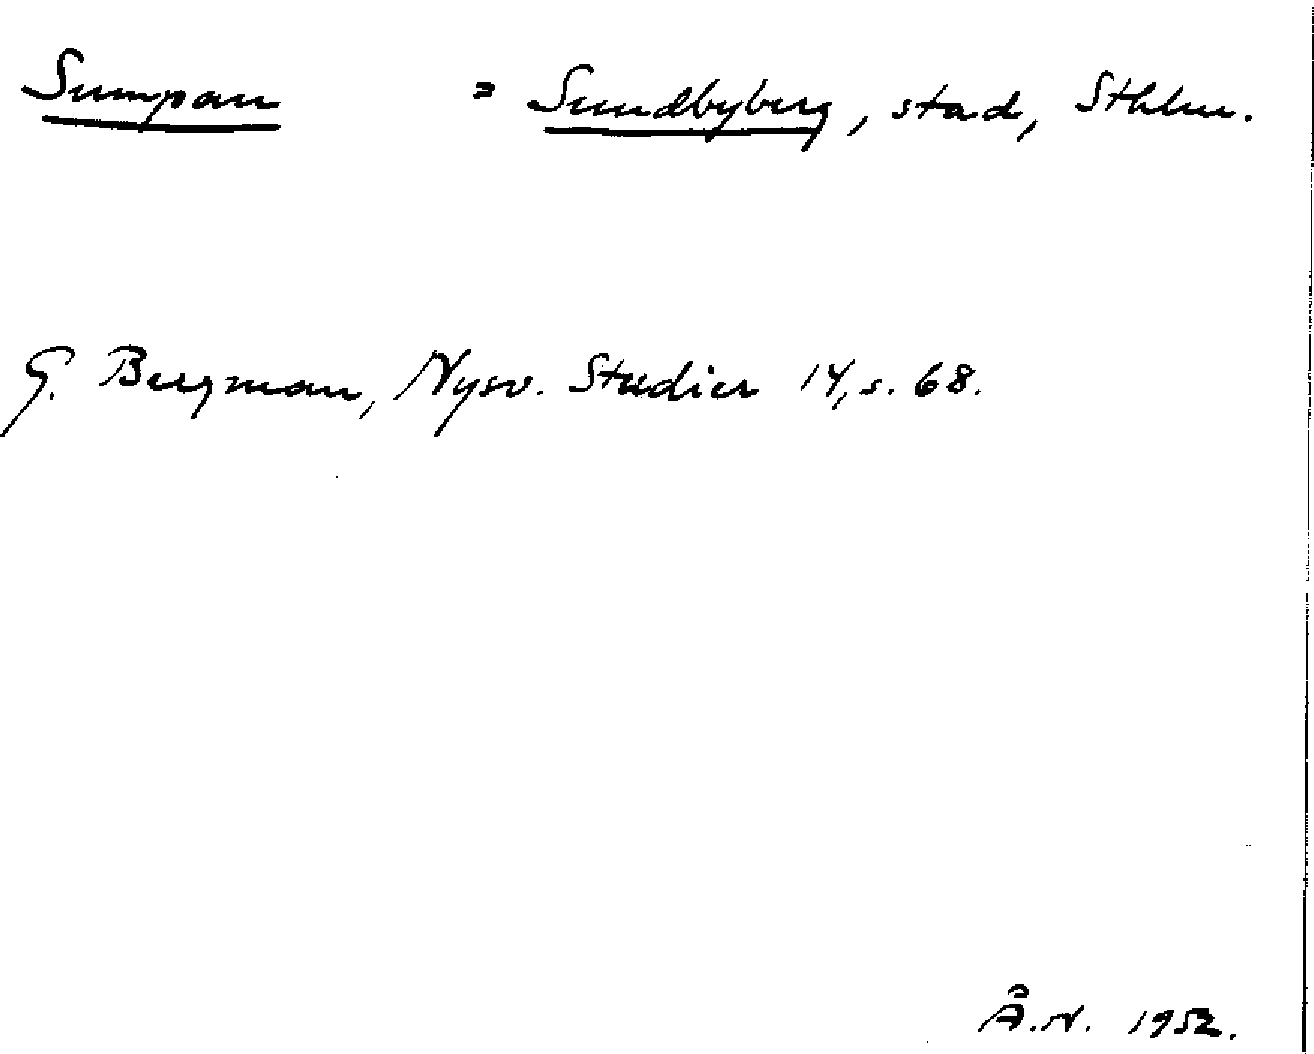 Sumpan = Sundbyberg, stad, Sthlm.
G. Bergman, Nysv. Studier 14, s. 68.
Å.N. 1952.